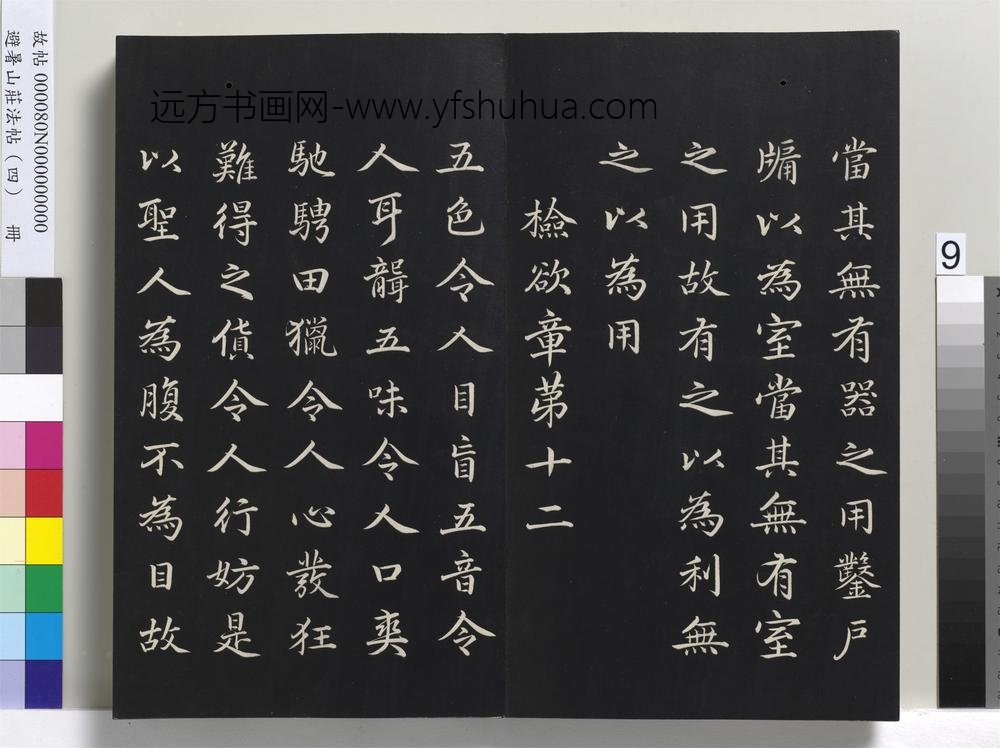 當其無有器之用鑿戶
牖以為室當其無有室
之用故有之以為利無
之以為用
檢欲章第十二
五色令人目盲五音令
人耳聾五味令人口爽
馳騁田獵令人心發狂
難得之貨令人行妨是
以聖人為腹不為目故
远方书画网-www.yfshuhua.com
故帖 000080N000000000
避暑山莊法帖(四) 冊
9